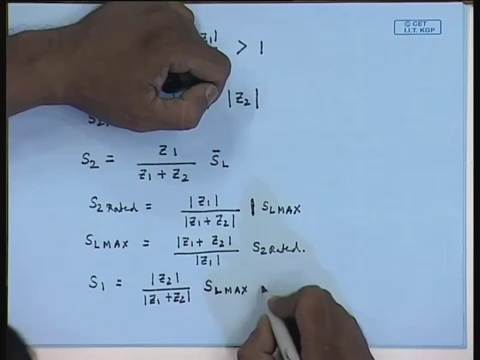 © CET
I.I.T. KGP
z1| > 1
|z2|
S2 = z1 / z1 + z2 S̄L
S2 Rated = |z1| / |z1 + z2| | SLMAX
SLMAX = |z1 + z2| / |z1| S2 Rated.
S1 = |z2| / |z1 + z2| SLMAX